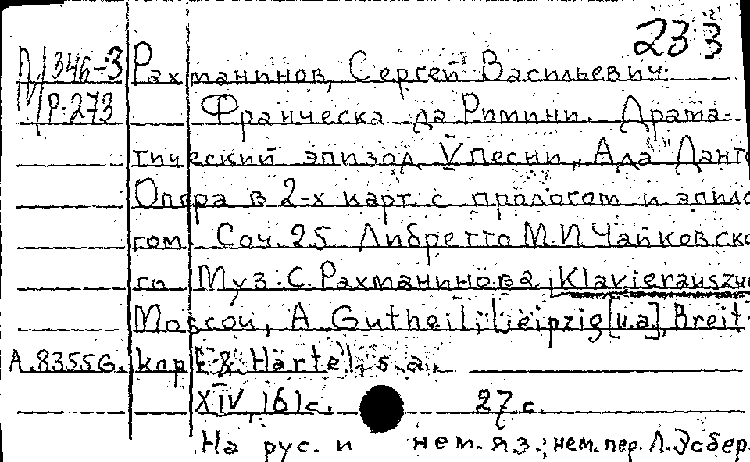 233
П/346-3 Рахманинов, Сергей Васильевич.
Р-273 Франческа да Римини. Драма-
тический эпизод V песни „Ада" Данте
Опера в 2-х карт. с прологом и эпило
гом. Соч. 25. Либретто М.И. Чайковско
го Муз. С. Рахманинова, Klavierauszu
Moscou, A. Gutheil; Leipzig [u.a], Breit-
A.83556. kopf & Härtel, s.a.
XIV, 161 с. 27 с.
На рус. и нем. яз.; нем. пер. Л. Эсбер